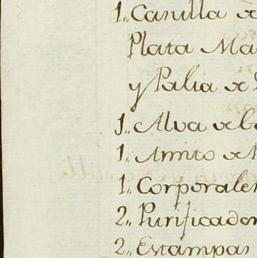 1., Casulla de
Plata Ma
y Palia de
1., Alva de
1., Amito de
1., Corporale
2., Purificador
2., Estampas